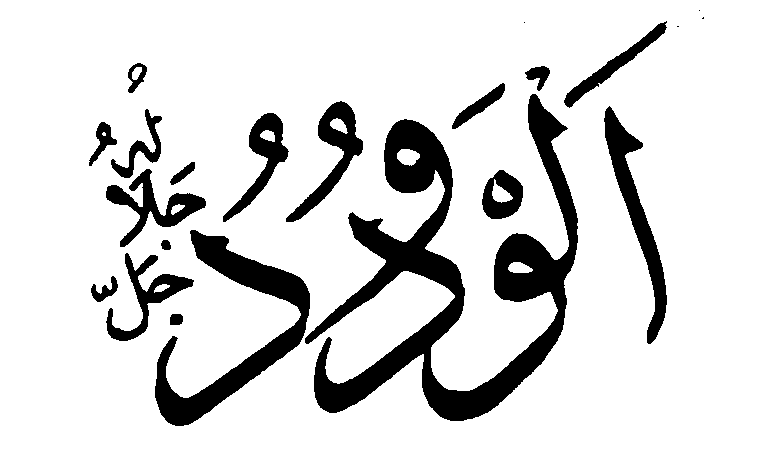 اَلْوَدُودُ
جَلَّ جَلَالُهُ